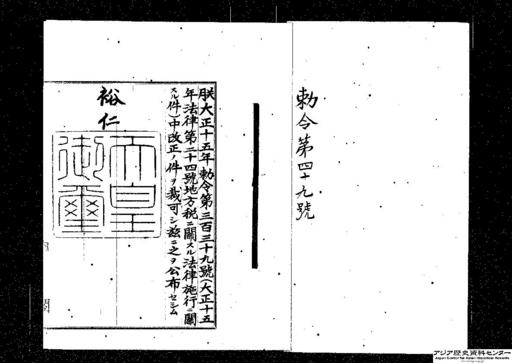 勅令第四十九號
朕大正十五年勅令第三百三十九號（大正十五
年法律第二十四號地方税ニ關スル法律施行ニ關
スル件）中改正ノ件ヲ裁可シ茲ニ之ヲ公布セシム
裕仁
天皇
御璽
アジア歴史資料センター
Japan Center for Asian Historical Records